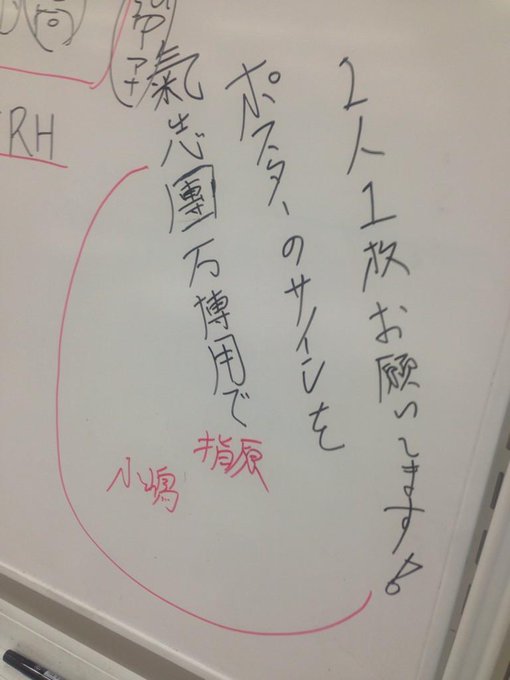 氣志團万博用で
ポスターのサインを
1人1枚お願いします♪
指原
小嶋
RH
アナ